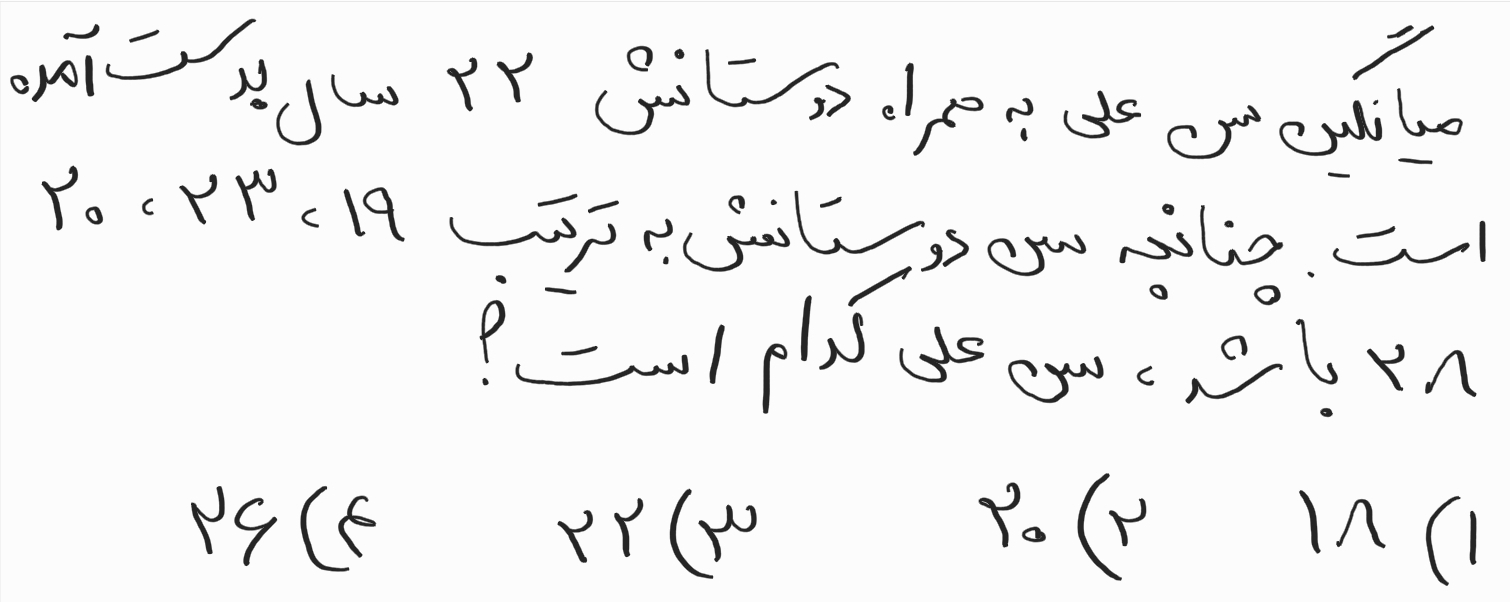 میانگین سن علی به همراه دوستانش ۲۲ سال بدست آمده
است. چنانچه سن دوستانش به ترتیب ۱۹، ۲۳، ۲۰،
۲۸ باشد، سن علی کدام است؟
۱) ۱۸ ۲) ۲۰ ۳) ۲۲ ۴) ۲۶